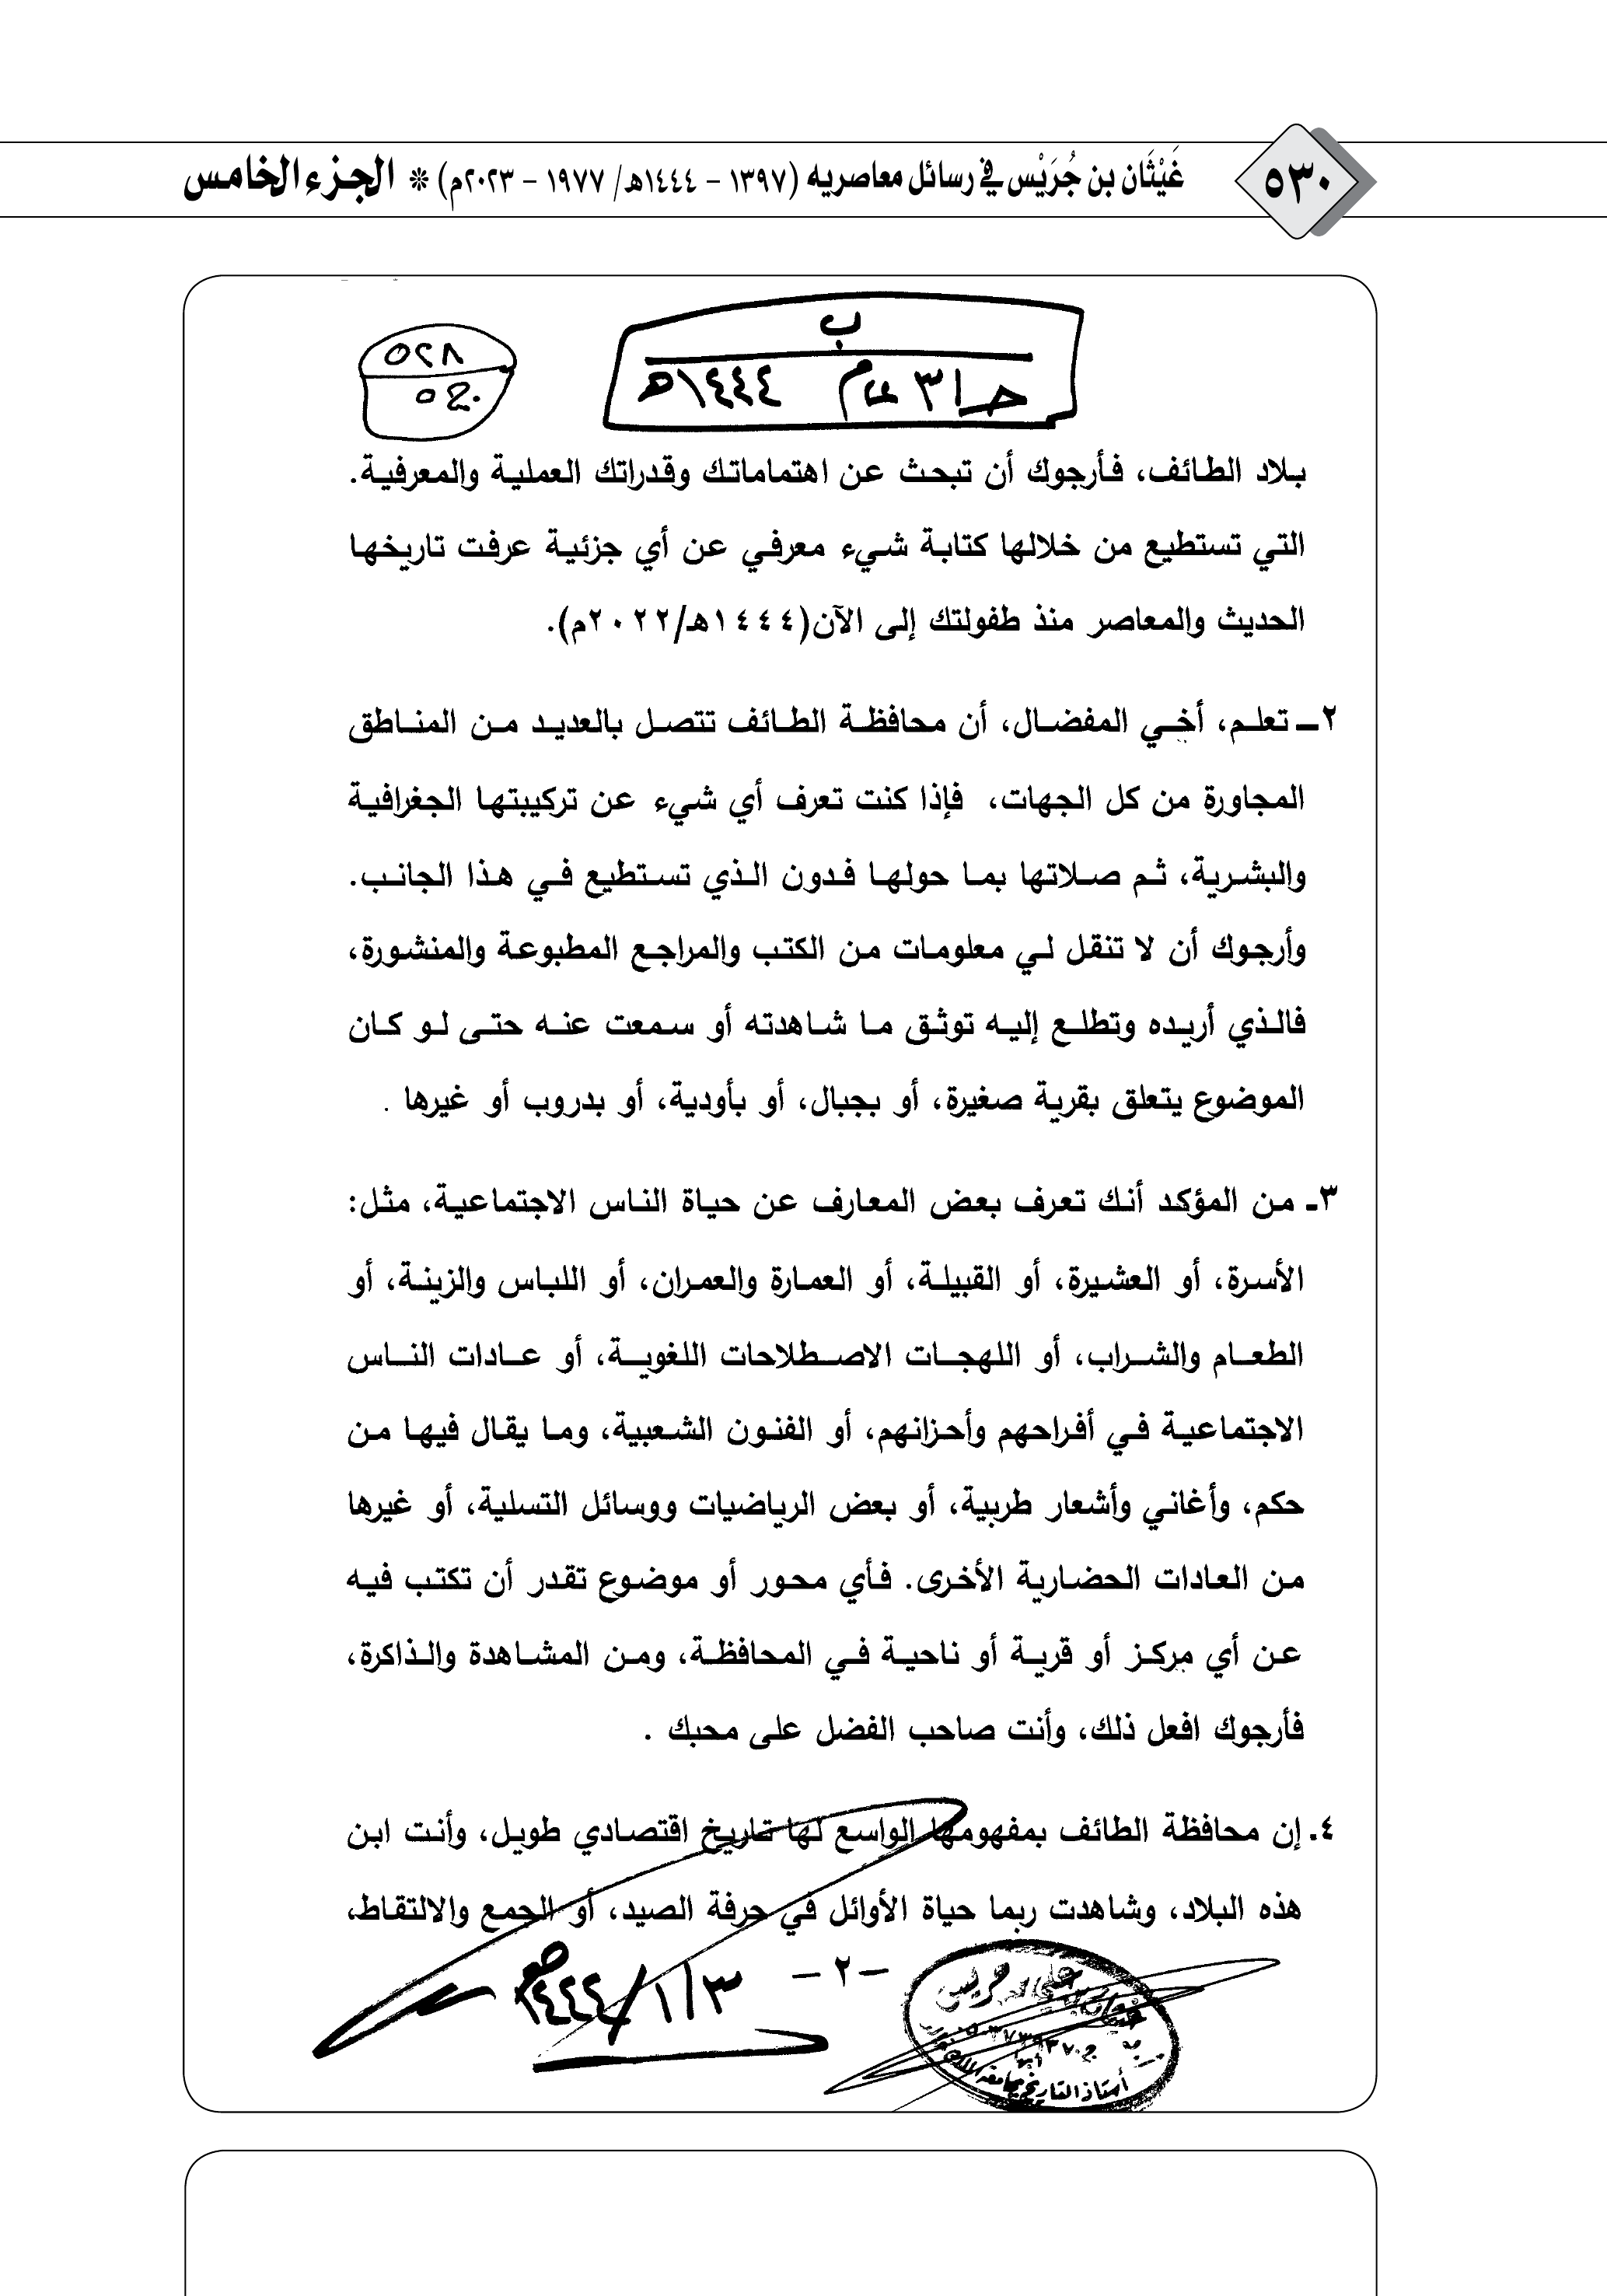 ٥٣٠
غَيْثَان بن جُرَيْس في رسائل معاصريه (١٣٩٧ – ١٤٤٤هـ/ ١٩٧٧ – ٢٠٢٣م) * الجزء الخامس
ب
١٤٤٤هـ
٥٢٨
بلاد الطائف، فأرجوك أن تبحث عن اهتماماتك وقدراتك العملية والمعرفية.
التي تستطيع من خلالها كتابة شيء معرفي عن أي جزئية عرفت تاريخها
الحديث والمعاصر منذ طفولتك إلى الآن(١٤٤٤هـ/٢٠٢٢م).
٢ــ تعلم، أخي المفضال، أن محافظة الطائف تتصل بالعديد من المناطق
المجاورة من كل الجهات، فإذا كنت تعرف أي شيء عن تركيبتها الجغرافية
والبشرية، ثم صلاتها بما حولها فدون الذي تستطيع في هذا الجانب.
وأرجوك أن لا تنقل لي معلومات من الكتب والمراجع المطبوعة والمنشورة،
فالذي أريده وتطلع إليه توثق ما شاهدته أو سمعت عنه حتى لو كان
الموضوع يتعلق بقرية صغيرة، أو بجبال، أو بأودية، أو بدروب أو غيرها .
٣ـ من المؤكد أنك تعرف بعض المعارف عن حياة الناس الاجتماعية، مثل:
الأسرة، أو العشيرة، أو القبيلة، أو العمارة والعمران، أو اللباس والزينة، أو
الطعام والشراب، أو اللهجات الاصطلاحات اللغوية، أو عادات الناس
الاجتماعية في أفراحهم وأحزانهم، أو الفنون الشعبية، وما يقال فيها من
حكم، وأغاني وأشعار طربية، أو بعض الرياضيات ووسائل التسلية، أو غيرها
من العادات الحضارية الأخرى. فأي محور أو موضوع تقدر أن تكتب فيه
عن أي مركز أو قرية أو ناحية في المحافظة، ومن المشاهدة والذاكرة،
فأرجوك افعل ذلك، وأنت صاحب الفضل على محبك .
٤. إن محافظة الطائف بمفهومها الواسع لها تاريخ اقتصادي طويل، وأنت ابن
هذه البلاد، وشاهدت ربما حياة الأوائل في حرفة الصيد، أو الجمع والالتقاط،
– ٢ –
٣/١/١٤٤٤هـ
أستاذ التاريخ بجامعة الملك